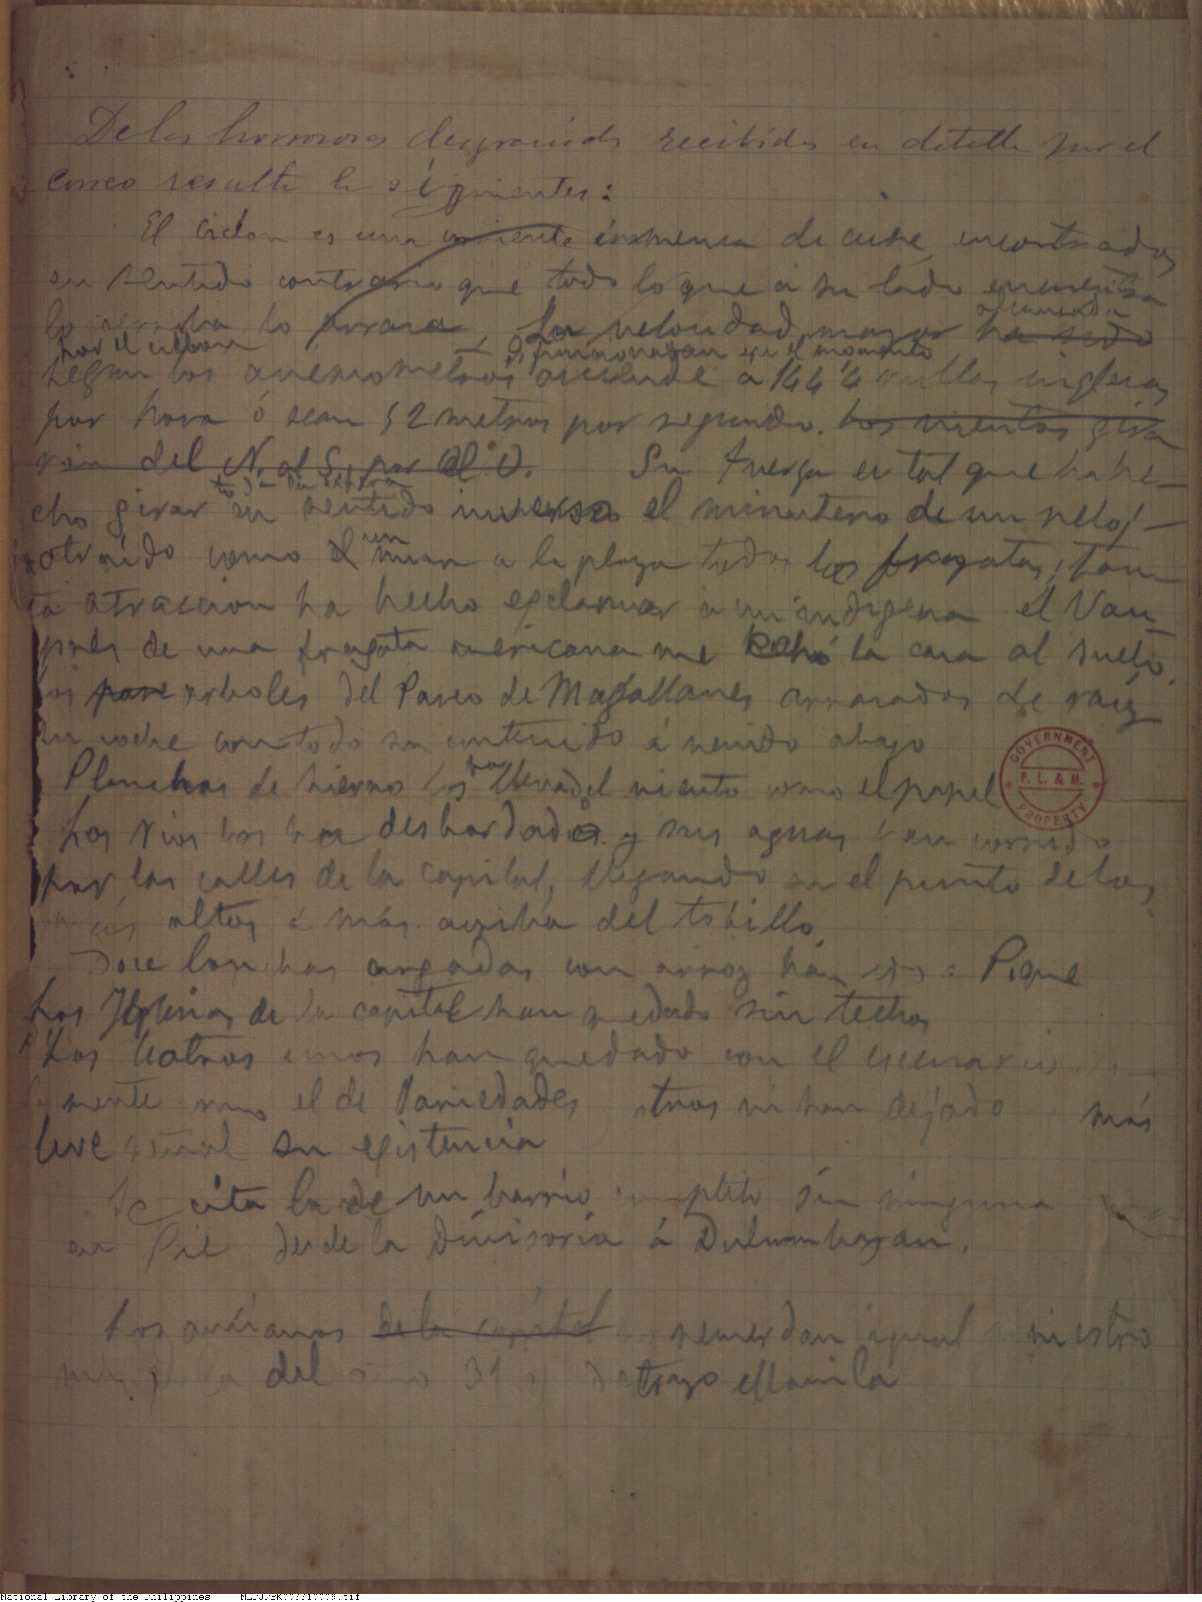 De las horrorosas desgracias recibidas en detalle por el
correo resulta lo siguientes:
El ciclon es una corriente inmensa de aire, encontrados
en sentido contrario que todo lo que a su lado encuentra
lo arrastra lo arrasa. Su velocidad mayor ha sido
alcanzada
por el ciclon
según los anemometros asciende a 144'4 millas inglesas
que funcionaban en el momento
por hora ó sean 52 metros por segundo. Los vientos gira
ron del N. al S. por el O. Su fuerza es tal que ha he-
cho girar en sentido inverso el minutero de un reloj
atraido como el iman a la playa todas las fragatas; tan
ta atraccion ha hecho esclamar a un indigena el Vau-
prés de una fragata americana me echó la cara al suelo.
Los arboles del Paseo de Magallanes arrasados de raiz
Un coche con todo su contenido á venido abajo
Planchas de hierro los ha llevado el viento como el papel
Los rios los ha desbordado y sus aguas han corrido
por las calles de la capital, llegando en el punto de las
más altas á más arriba del tobillo
Doce lanchas cargadas con arroz han ido a Pique
Las Iglesias de la capital han quedado sin techos
Los teatros unos han quedado con el escenario
mente como el de Variedades otros ni han dejado más
leve señal su existencia
Se cita la de un barrio completo sin ninguna
en Pie desde la Divisoria á Dulumbayan.
Los ancianos de la capital recuerdan igual siniestro
del año 31 Manila
GOVERNMENT
P. L. & M.
PROPERTY
National Library of the Philippines